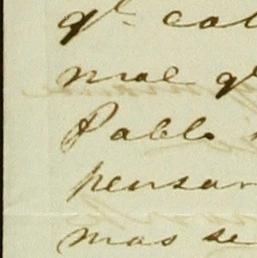 qe. cal
mal qe
Pablo
pensar
mas se